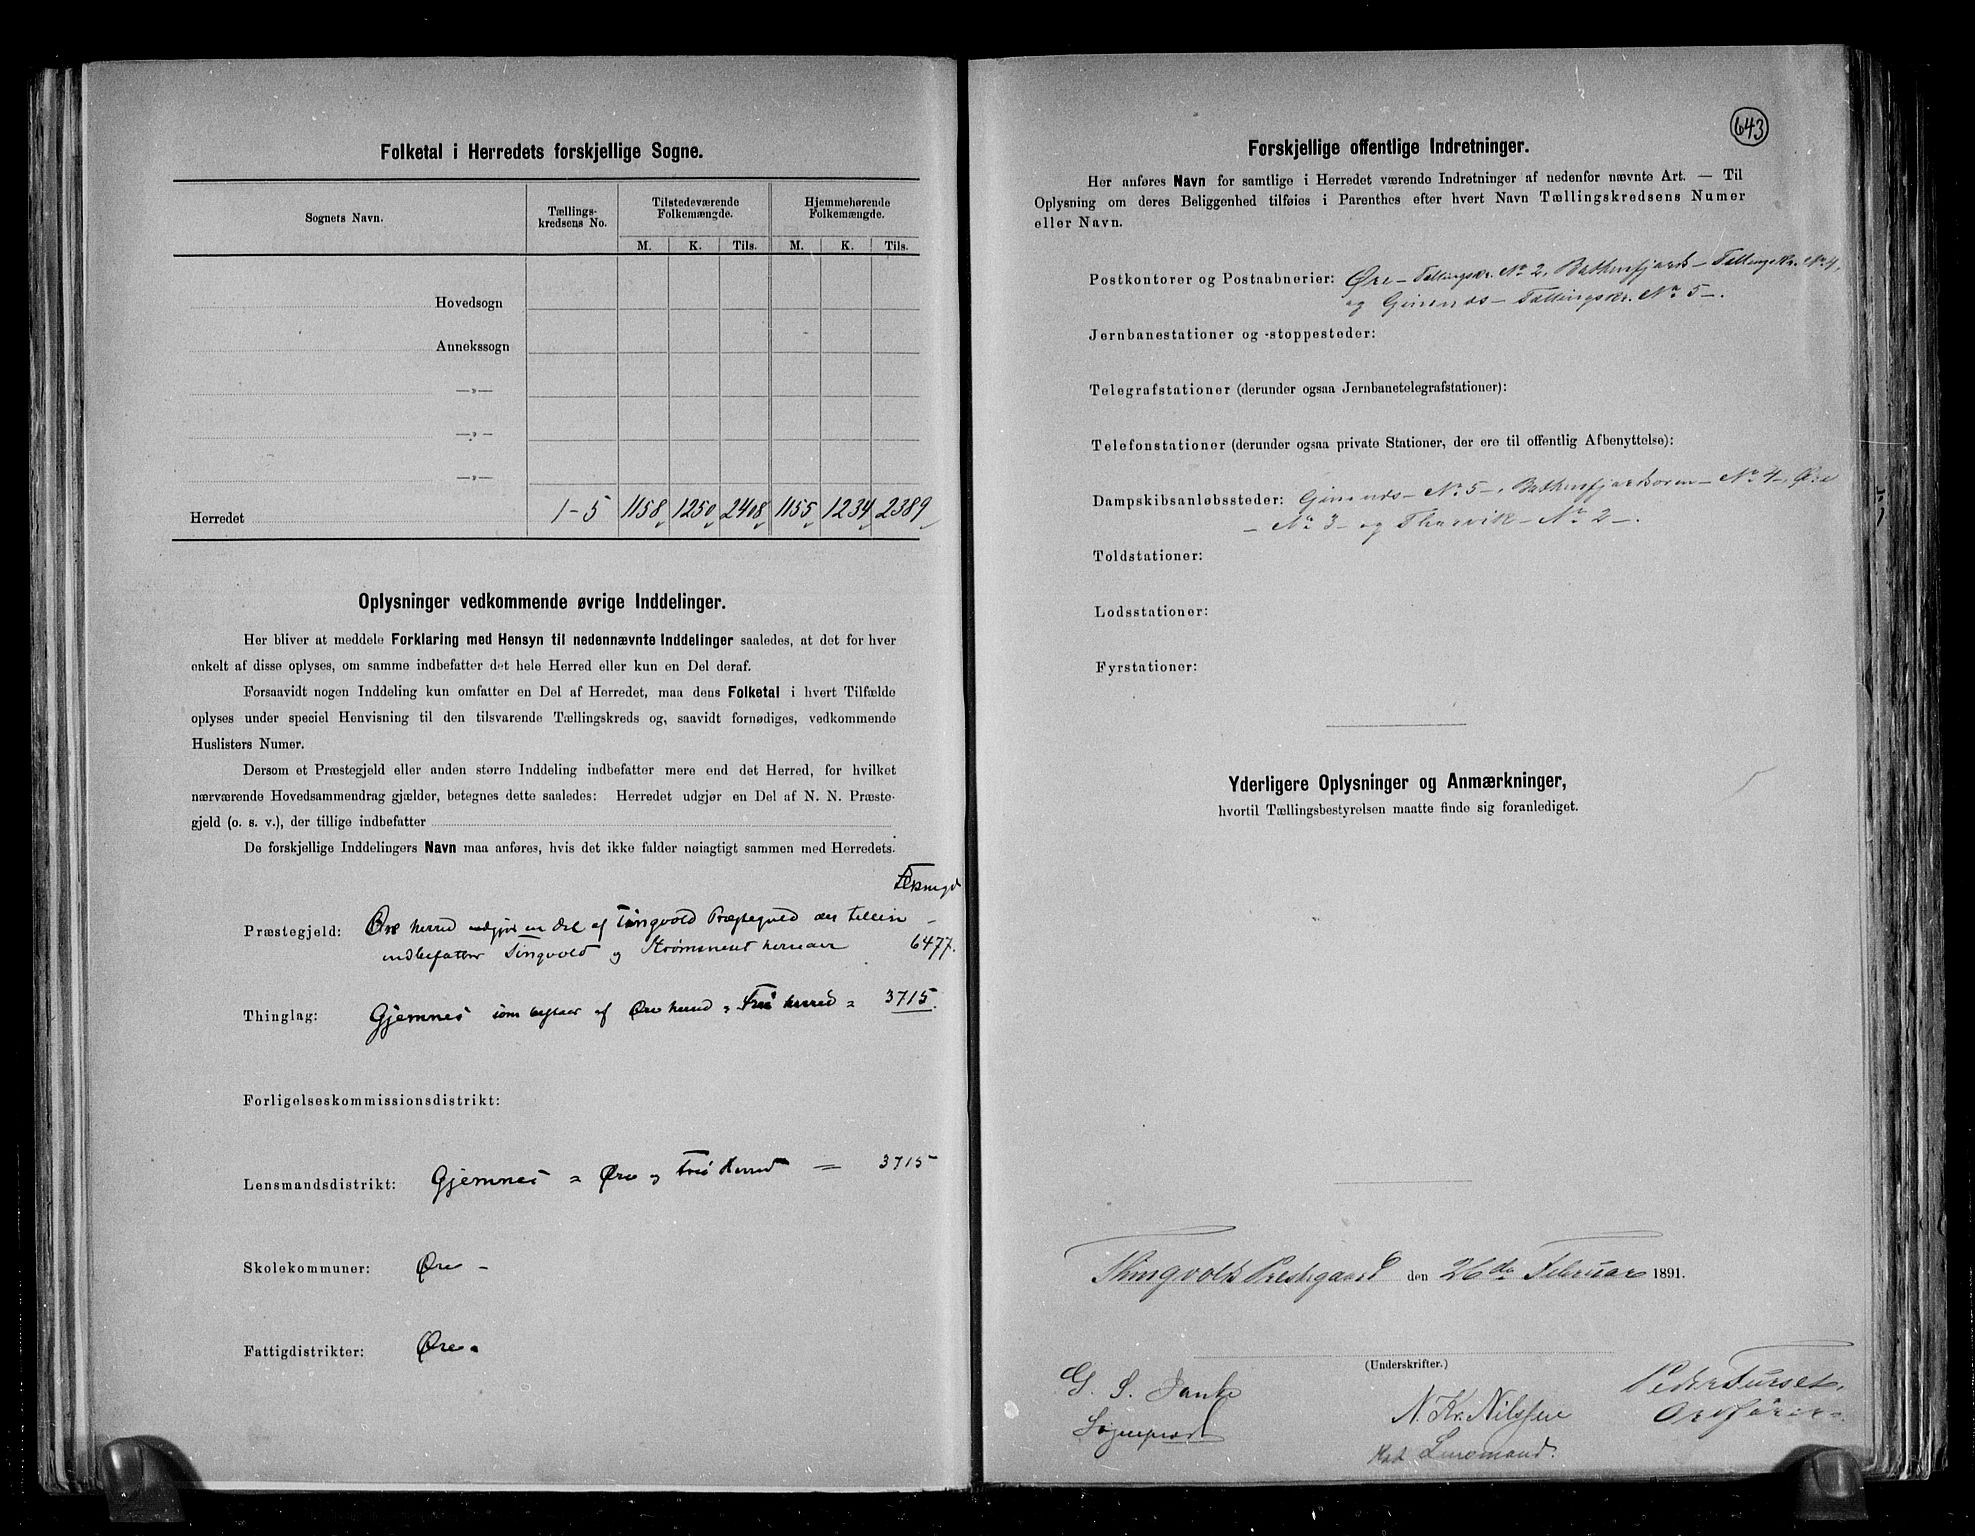 Folketal i Herredets forskjellige Sogne.
Sognets Navn.
Tællings-
kredsens No.
Tilstedeværende
Folkemængde.
Hjemmehørende
Folkemængde.
M. K. Tils. M. K. Tils.
Hovedsogn
Annekssogn
—»—
—»—
—»—
Herredet 1-5 1158 1250 2408 1155 1234 2389
Oplysninger vedkommende øvrige Inddelinger.
Her bliver at meddele Forklaring med Hensyn til nedennævnte Inddelinger saaledes, at det for hver
enkelt af disse oplyses, om samme indbefatter det hele Herred eller kun en Del deraf.
Forsaavidt nogen Inddeling kun omfatter en Del af Herredet, maa dens Folketal i hvert Tilfælde
oplyses under speciel Henvisning til den tilsvarende Tællingskreds og, saavidt fornødiges, vedkommende
Huslisters Numer.
Dersom et Præstegjeld eller anden større Inddeling indbefatter mere end det Herred, for hvilket
nærværende Hovedsammendrag gjælder, betegnes dette saaledes: Herredet udgjør en Del af N. N. Præste-
gjeld (o. s. v.), der tillige indbefatter
De forskjellige Inddelingers Navn maa anføres, hvis det ikke falder nøiagtigt sammen med Herredets.
Præstegjeld: Øre herred udgjør en Del af Tingvold Præstegjeld der tillige
indbefatter Tingvold og Strømsneset herreder 6477.
Thinglag: Gjemnes som bestaar af Øre herred & Frei herred = 3715.
Forligelseskommissionsdistrikt:
Lensmandsdistrikt: Gjemnes = Øre og Frei Herred = 3715
Skolekommuner: Øre -
Fattigdistrikter: Øre.
643
Forskjellige offentlige Indretninger.
Her anføres Navn for samtlige i Herredet værende Indretninger af nedenfor nævnte Art. — Til
Oplysning om deres Beliggenhed tilføies i Parenthes efter hvert Navn Tællingskredsens Numer
eller Navn.
Postkontorer og Postaabnerier: Øre - Tællingskr. No 2, Bathnsfjord - Tællingskr. No 4,
og Gimnes - Tællingskr. No 5 -.
Jernbanestationer og -stoppesteder:
Telegrafstationer (derunder ogsaa Jernbanetelegrafstationer):
Telefonstationer (derunder ogsaa private Stationer, der ere til offentlig Afbenyttelse):
Dampskibsanløbssteder: Gimnes - No 5 -, Bathnsfjordsøren - No 4 -, Øre
- No 3 - og Thorvik - No 2 -.
Toldstationer:
Lodsstationer:
Fyrstationer:
Yderligere Oplysninger og Anmærkninger,
hvortil Tællingsbestyrelsen maatte finde sig foranlediget.
Thingvold Prestegaard den 26de Februar 1891.
(Underskrifter.)
G. S. Janke
Sogneprest
N. Kr. Nilssen
Lensmand.
Peder Furset,
Ordfører